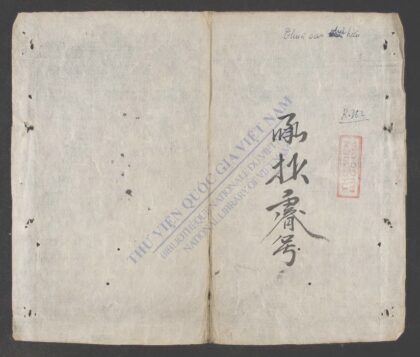 Thừa sao hiệu
R.362
承抄齋号
THƯ VIỆN QUỐC GIA VIỆT NAM
BIBLIOTHÈQUE NATIONALE DU VIETNAM
NATIONAL LIBRARY OF VIETNAM